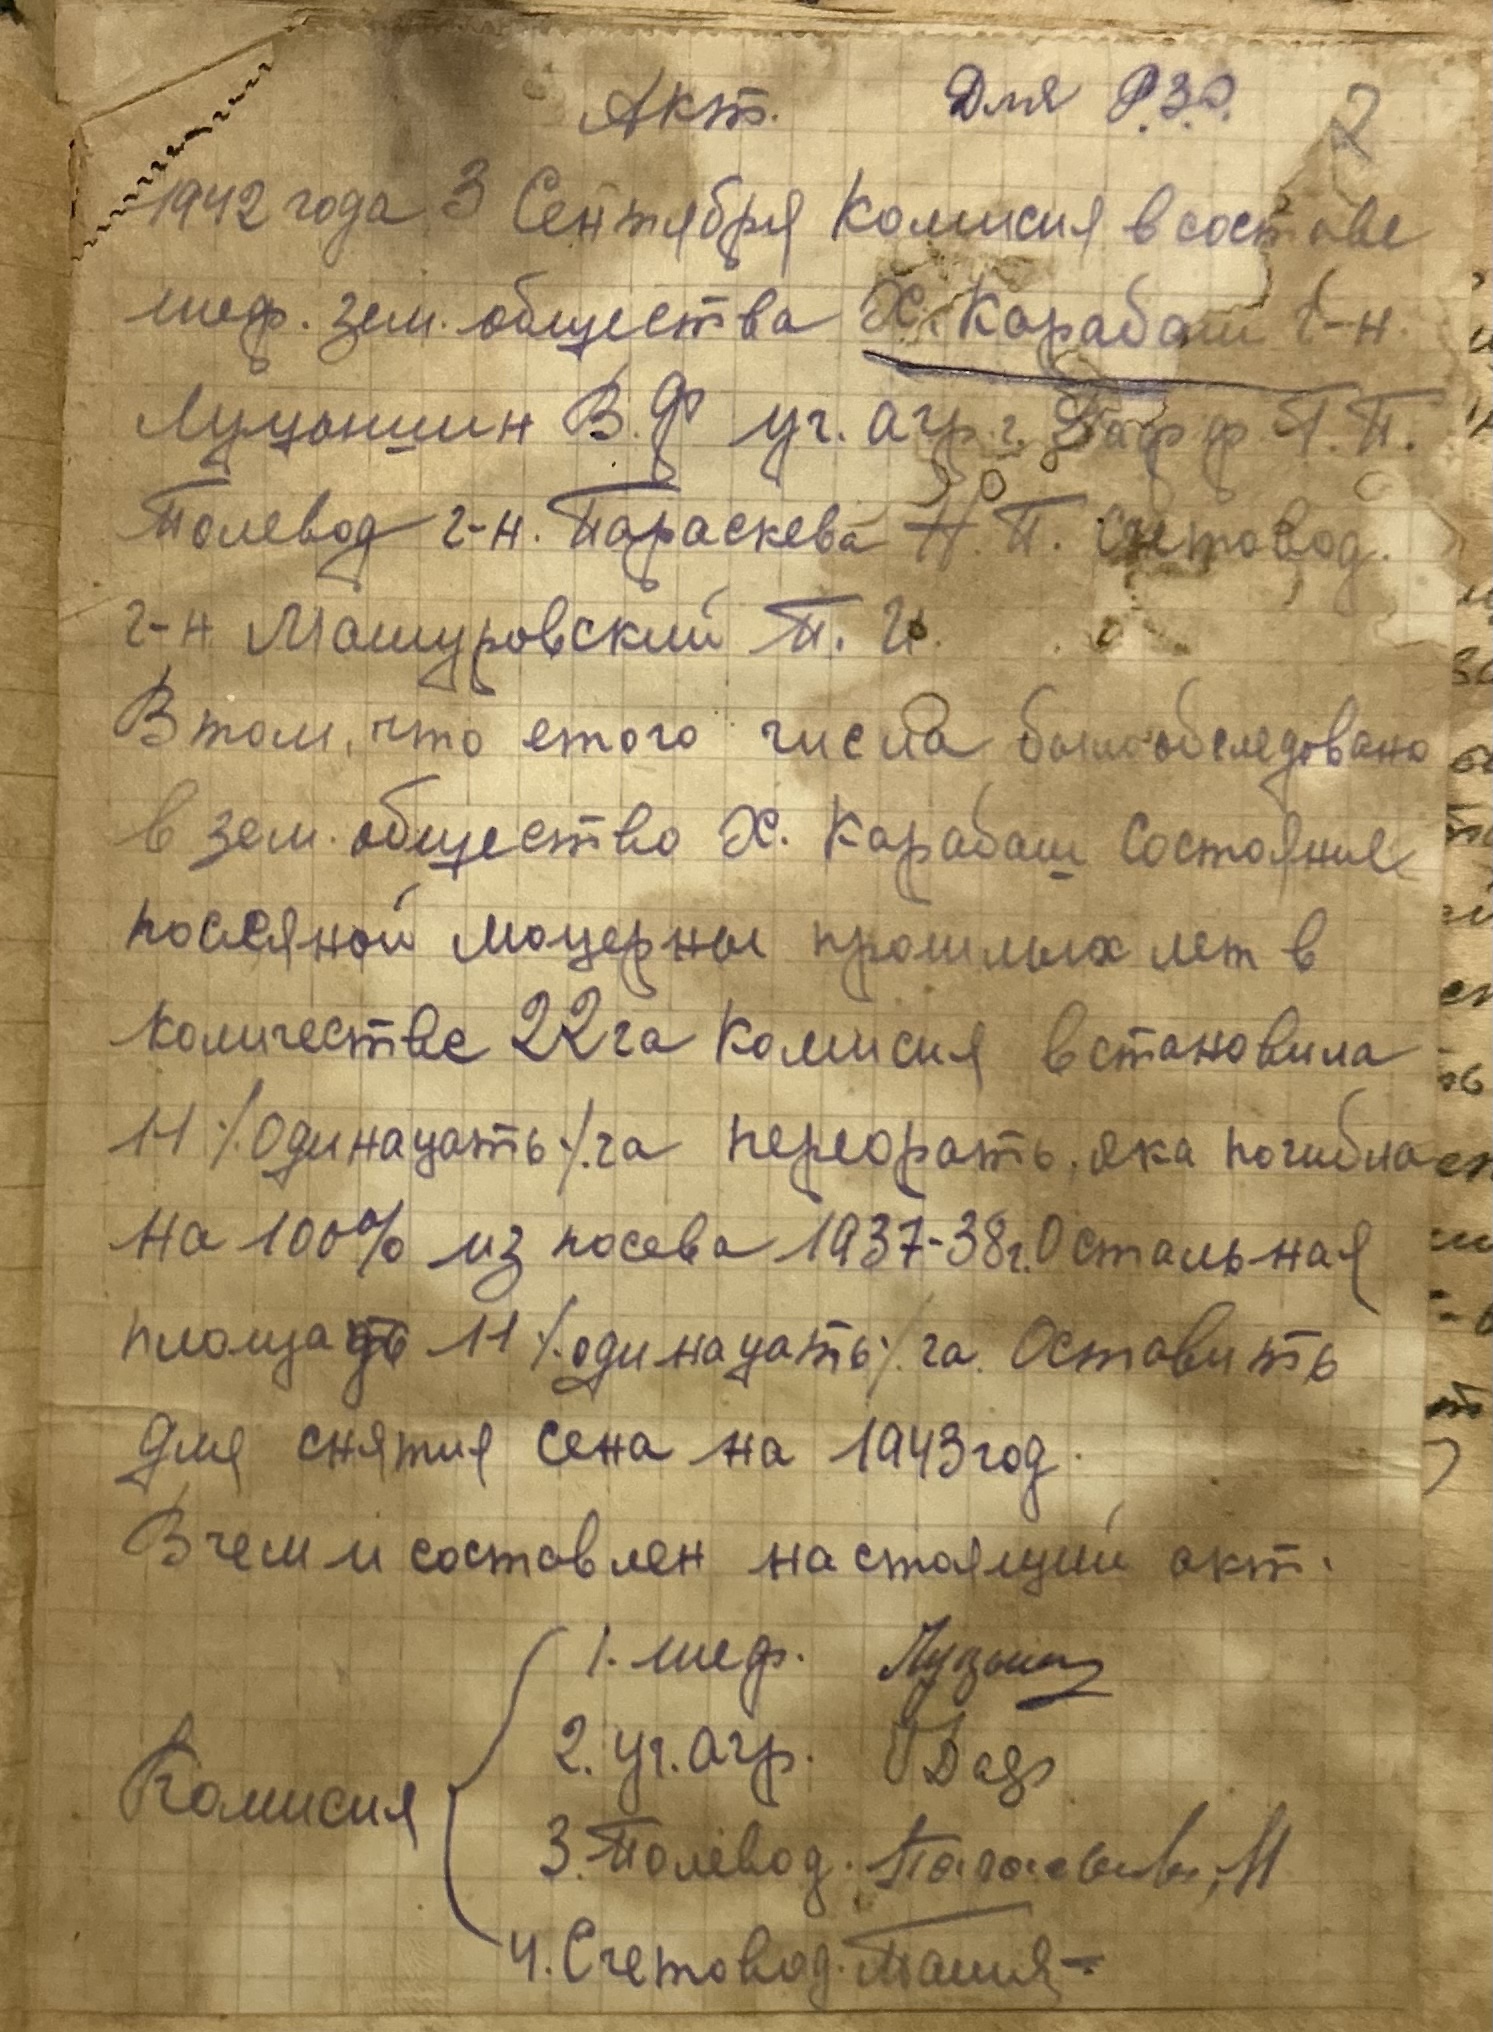 Акт. Для Р.З.О. 2
1942 года 3 Сентября Комисия в составе
шеф. зем. общества Х. Карабаш г-н.
Луцышин В.Ф уч. агр. г. Дафф П.П.
Полевод г-н. Параскева Н.П. Счетовод.
г-н Машуровский П. И.
В том, что етого числа было обследовано
в зем. общество Х. Карабаш Состояние
посеяной люцерны прошлых лет в
количестве 22 га Комисия встановила
11 /.одинацать./. га переорать, яка погибла
на 100% из посева 1937-38г. Остальная
площадь 11 /.одинацать./. га. Оставить
для снятия сена на 1943 год.
В чем и составлен настоящий акт.
1. шеф.
2. уч. агр. Даф
Комисия
3. Полевод.
4. Счетовод.